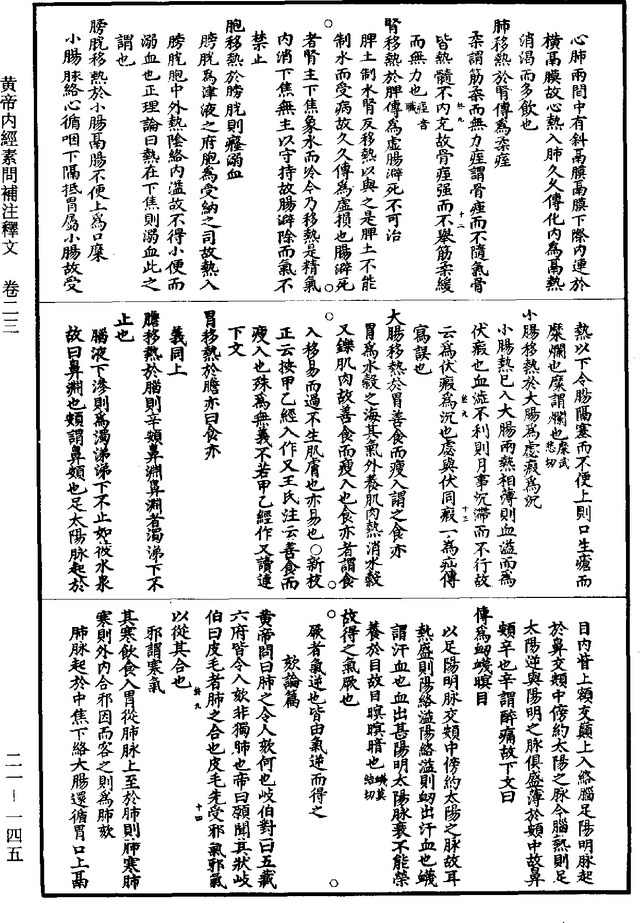 心肺兩間中有斜鬲膜鬲膜下際內連於
橫鬲膜故心熱入肺久久傳化內為鬲熱
消渴而多飲也
肺移熱於腎傳為柔痓
柔謂筋柔而無力痓謂骨痓而不隨氣骨
皆熱髓不內充故骨痓强而不舉筋柔緩
而無力也
腎移熱於脾傳為虛腸澼死不可治
脾土制水腎反移熱以與之是脾土不能
制水而受病故久久傳為虛損也腸澼死
者腎主下焦象水而冷今乃移熱是精氣
內消下焦無主以守持故腸澼除而氣不
禁止
胞移熱於膀胱則癃溺血
膀胱為津液之府胞為受納之司故熱入
膀胱胞中外熱陰絡內溢故不得小便而
溺血也正理論曰熱在下焦則溺血此之
謂也
膀胱移熱於小腸鬲腸不便上為口糜
小腸脉絡心循咽下隔抵胃屬小腸故受
熱以下令腸隔塞而不便上則口生瘡而
糜爛也糜謂爛也
小腸移熱於大腸為虙瘕為沉
小腸熱已入大腸兩熱相薄則血溢而為
伏瘕也血澁不利則月事沉滯而不行故
云為伏瘕為沉也虙與伏同瘕一為疝傳
寫誤也
大腸移熱於胃善食而瘦入謂之食亦
胃為水穀之海其氣外養肌肉熱消水穀
又鑠肌肉故善食而瘦入也食亦者謂食
入移易而過不生肌膚也亦易也○新校
正云按甲乙經入作又王氏注云善食而
瘦入也殊為無義不若甲乙經作又讀連
下文
胃移熱於膽亦曰食亦
義同上
膽移熱於腦則辛頞鼻淵鼻淵者濁涕下不
止也
腦液下滲則為濁涕涕下不止如彼水泉
故曰鼻淵也頞謂鼻頞也足太陽脉起於
目內眥上額交巔上入絡腦足陽明脉起
於鼻交頞中傍約太陽之脉今腦熱則足
太陽逆與陽明之脉俱盛薄於頞中故鼻
頞辛也辛謂酸痛故下文曰
傳為衂衊瞑目
以足陽明脉交頞中傍約太陽之脉故耳
熱盛則陽絡溢陽絡溢則衂出汗血也衊
謂汗血也血出甚陽明太陽脉衰不能榮
養於目故目瞑瞑暗也
故得之氣厥也
厥者氣逆也皆由氣逆而得之
欬論篇
黃帝問曰肺之令人欬何也岐伯對曰五藏
六府皆令人欬非獨肺也帝曰願聞其狀岐
伯曰皮毛者肺之合也皮毛先受邪氣邪氣
以從其合也
邪謂寒氣
其寒飲食入胃從肺脉上至於肺則肺寒肺
寒則外內合邪因而客之則為肺欬
肺脉起於中焦下絡大腸還循胃口上鬲
黃帝內經素問補注釋文 卷二三
二一－一四五